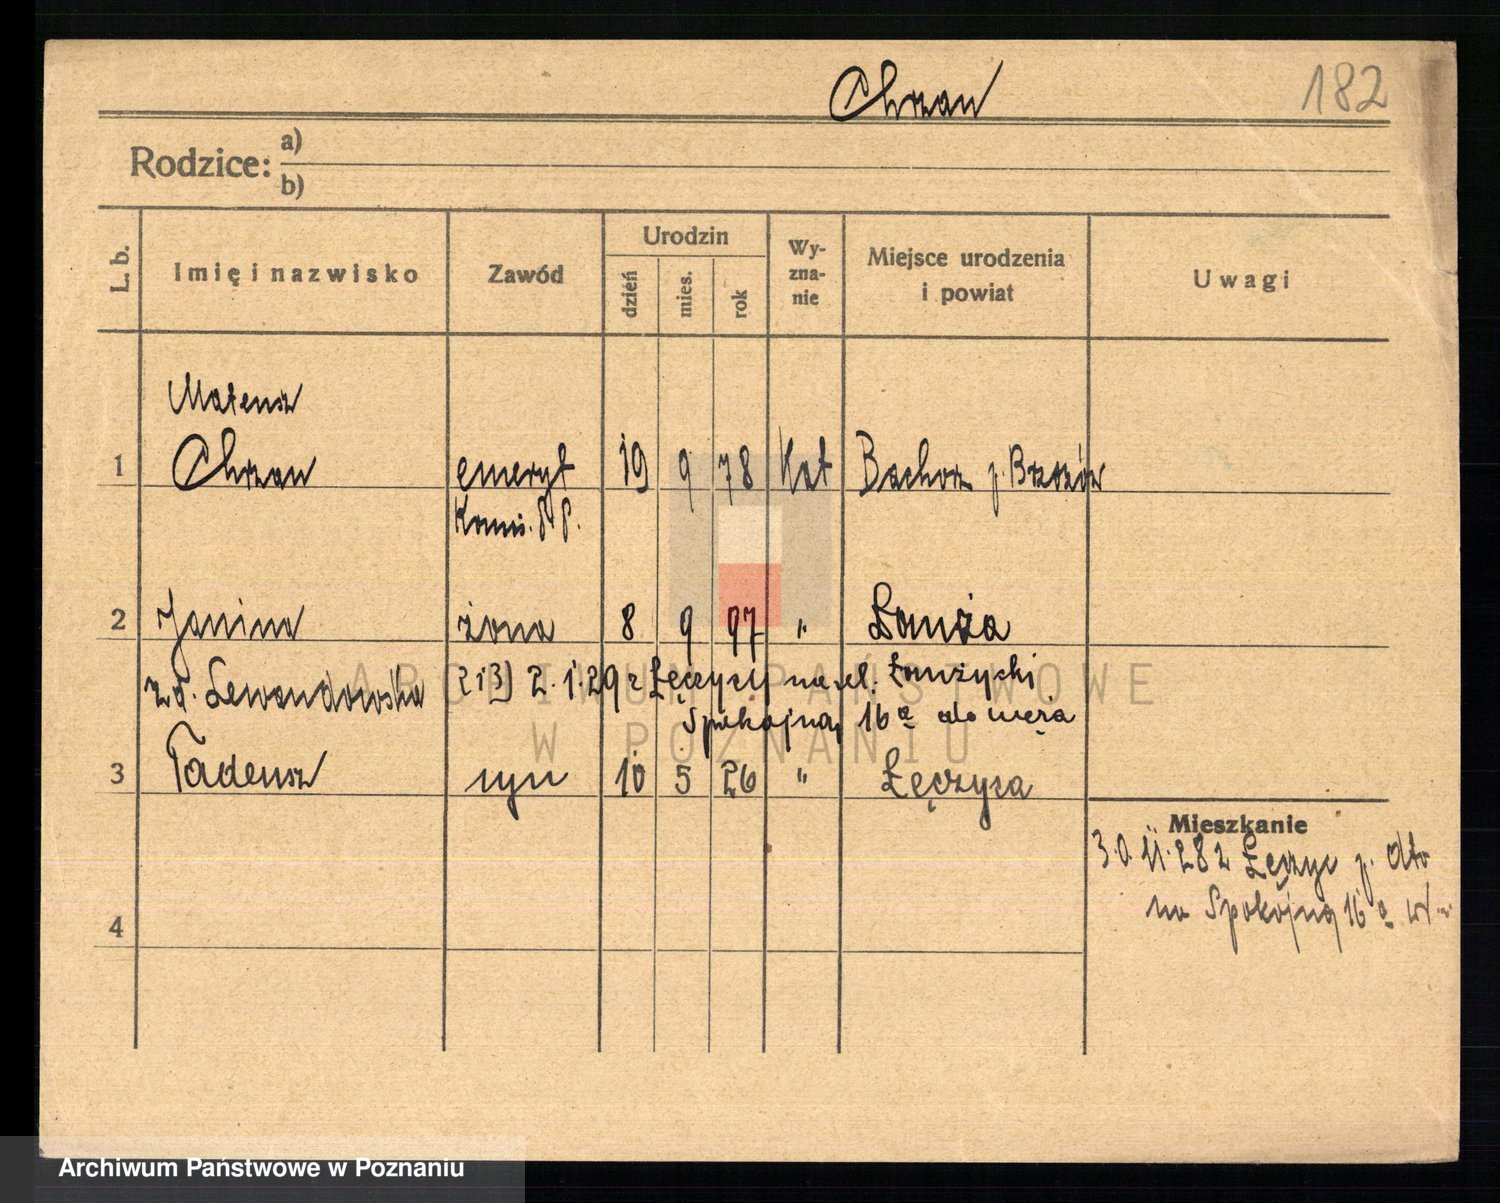 Chrzan 182
Rodzice: a)
b)
L. b. Imię i nazwisko Zawód Urodzin dzień mies. rok Wy-zna-nie Miejsce urodzenia i powiat Uwagi
Mateusz
1 Chrzan emeryt 19 9 78 Kat Bachorz p. Brzozów
Komis. P.P.
2 Janina żona 8 9 97 " Łomża
z d. Lewandowska 2 i 3) 2.1.29 r Łęczyca na ul.
Spokojną 16a do męża
3 Tadeusz syn 10 5 26 " Łęczyca
Mieszkanie
30.11.28 z Łęczyc p. dto
na Spokojną 16a
4
ARCHIWUM PAŃSTWOWE
W POZNANIU
Archiwum Państwowe w Poznaniu